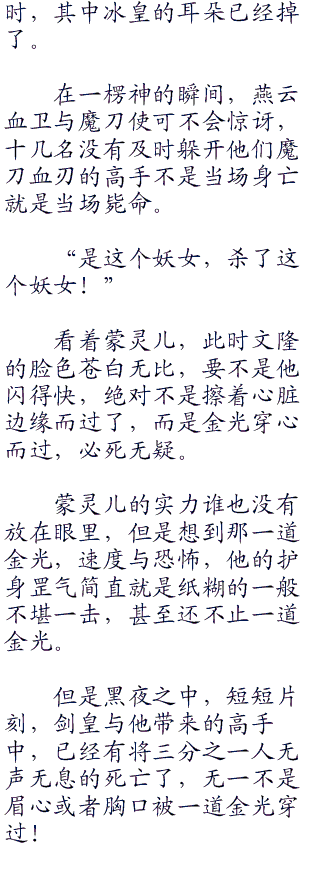 时，其中冰皇的耳朵已经掉
了。
在一楞神的瞬间，燕云
血卫与魔刀使可不会惊讶，
十几名没有及时躲开他们魔
刀血刃的高手不是当场身亡
就是当场毙命。
“是这个妖女，杀了这
个妖女！”
看着蒙灵儿，此时文隆
的脸色苍白无比，要不是他
闪得快，绝对不是擦着心脏
边缘而过了，而是金光穿心
而过，必死无疑。
蒙灵儿的实力谁也没有
放在眼里，但是想到那一道
金光，速度与恐怖，他的护
身罡气简直就是纸糊的一般
不堪一击，甚至还不止一道
金光。
但是黑夜之中，短短片
刻，剑皇与他带来的高手
中，已经有将三分之一人无
声无息的死亡了，无一不是
眉心或者胸口被一道金光穿
过！